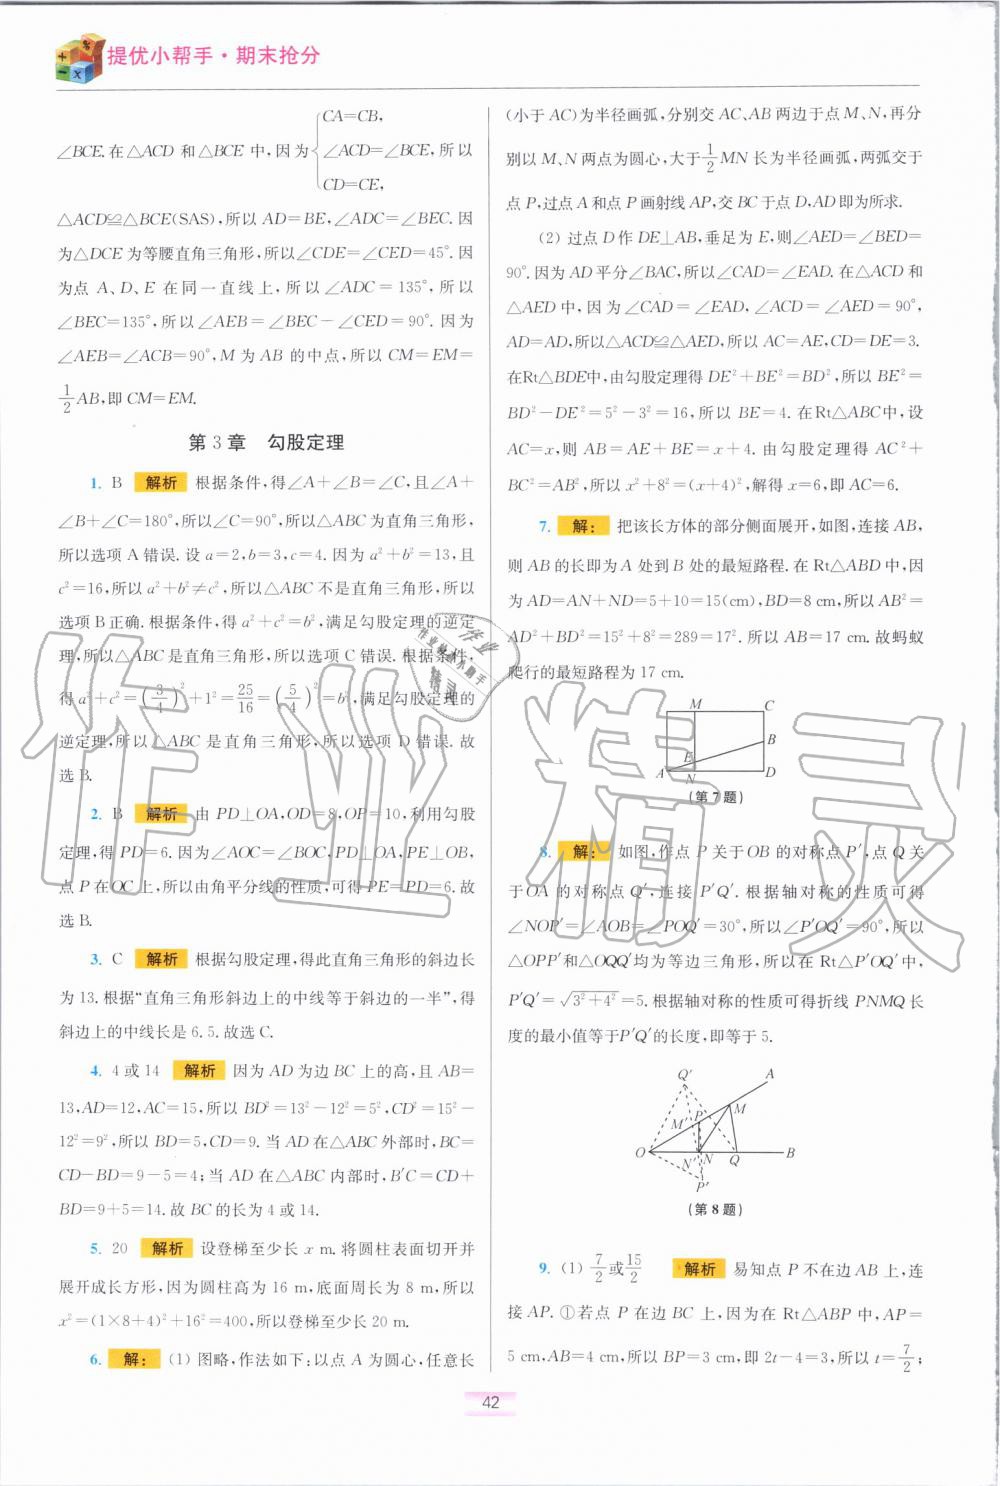 提优小帮手·期末抢分
CA=CB,
∠BCE.在△ACD 和△BCE 中,因为 ∠ACD=∠BCE,所以
CD=CE,
△ACD≌△BCE(SAS),所以 AD=BE,∠ADC=∠BEC.因
为△DCE 为等腰直角三角形,所以∠CDE=∠CED=45°.因
为点 A、D、E 在同一直线上,所以∠ADC=135°,所以
∠BEC=135°,所以∠AEB=∠BEC-∠CED=90°.因为
∠AEB=∠ACB=90°,M 为 AB 的中点,所以 CM=EM=
1/2 AB,即 CM=EM.
第 3 章 勾股定理
1. B 解析 根据条件,得∠A+∠B=∠C,且∠A+
∠B+∠C=180°,所以∠C=90°,所以△ABC 为直角三角形,
所以选项 A 错误.设 a=2,b=3,c=4.因为 a²+b²=13,且
c²=16,所以 a²+b²≠c²,所以△ABC 不是直角三角形,所以
选项 B 正确.根据条件,得 a²+c²=b²,满足勾股定理的逆定
理,所以△ABC 是直角三角形,所以选项 C 错误.根据条件,
得 a²+c²=(3/4)²+1²=25/16=(5/4)²=b²,满足勾股定理的
逆定理,所以△ABC 是直角三角形,所以选项 D 错误.故
选 B.
2. B 解析 由 PD⊥OA,OD=8,OP=10,利用勾股
定理,得 PD=6.因为∠AOC=∠BOC,PD⊥OA,PE⊥OB,
点 P 在 OC 上,所以由角平分线的性质,可得 PE=PD=6.故
选 B.
3. C 解析 根据勾股定理,得此直角三角形的斜边长
为 13.根据“直角三角形斜边上的中线等于斜边的一半”,得
斜边上的中线长是 6.5.故选 C.
4. 4 或 14 解析 因为 AD 为边 BC 上的高,且 AB=
13,AD=12,AC=15,所以 BD²=13²-12²=5²,CD²=15²-
12²=9²,所以 BD=5,CD=9.当 AD 在△ABC 外部时,BC=
CD-BD=9-5=4;当 AD 在△ABC 内部时,B′C=CD+
BD=9+5=14.故 BC 的长为 4 或 14.
5. 20 解析 设登梯至少长 x m.将圆柱表面切开并
展开成长方形,因为圆柱高为 16 m,底面周长为 8 m,所以
x²=(1×8+4)²+16²=400,所以登梯至少长 20 m.
6. 解: (1) 图略,作法如下:以点 A 为圆心,任意长
(小于 AC)为半径画弧,分别交 AC、AB 两边于点 M、N,再分
别以 M、N 两点为圆心,大于 1/2 MN 长为半径画弧,两弧交于
点 P,过点 A 和点 P 画射线 AP,交 BC 于点 D,AD 即为所求.
(2) 过点 D 作 DE⊥AB,垂足为 E,则∠AED=∠BED=
90°.因为 AD 平分∠BAC,所以∠CAD=∠EAD.在△ACD 和
△AED 中,因为∠CAD=∠EAD,∠ACD=∠AED=90°,
AD=AD,所以△ACD≌△AED,所以 AC=AE,CD=DE=3.
在Rt△BDE中,由勾股定理得 DE²+BE²=BD²,所以 BE²=
BD²-DE²=5²-3²=16,所以 BE=4.在 Rt△ABC中,设
AC=x,则 AB=AE+BE=x+4.由勾股定理得 AC²+
BC²=AB²,所以 x²+8²=(x+4)²,解得 x=6,即 AC=6.
7. 解: 把该长方体的部分侧面展开,如图,连接 AB,
则 AB 的长即为 A 处到 B 处的最短路程.在 Rt△ABD 中,因
为 AD=AN+ND=5+10=15(cm),BD=8 cm,所以 AB²=
AD²+BD²=15²+8²=289=17².所以 AB=17 cm.故蚂蚁
爬行的最短路程为 17 cm.
M C
B
E
A N D
(第 7 题)
8. 解: 如图,作点 P 关于 OB 的对称点 P′,点 Q 关
于 OA 的对称点 Q′,连接 P′Q′.根据轴对称的性质可得
∠NOP′=∠AOB=∠POQ′=30°,所以∠P′OQ′=90°,所以
△OPP′和△OQQ′均为等边三角形,所以在 Rt△P′OQ′中,
P′Q′=√3²+4²=5.根据轴对称的性质可得折线 PNMQ 长
度的最小值等于P′Q′的长度,即等于 5.
Q′ A
M′ P M
O N′ N Q B
P′
(第 8 题)
9. (1) 7/2 或 15/2 解析 易知点 P 不在边 AB 上,连
接 AP.①若点 P 在边 BC 上,因为在 Rt△ABP 中,AP=
5 cm,AB=4 cm,所以 BP=3 cm,即 2t-4=3,所以 t=7/2;
42
作业精灵